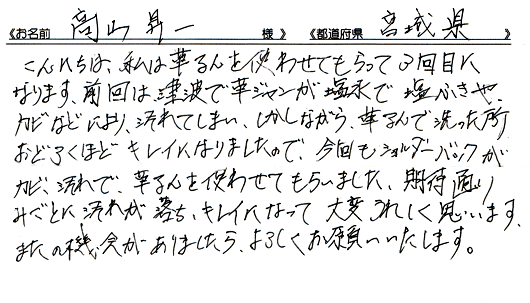 《お名前 高山昇一 様》《都道府県 宮城県 》
こんにちは、私は革るんを使わせてもらって3回目に
なります、前回は津波で革ジャンが塩水で塩ふきや、
カビなどにより、汚れてしまい、しかしながら、革るんで洗った所
おどろくほどキレイになりましたので、今回もショルダーバックが
カビ、汚れで、革るんを使わせてもらいました、期待通り
みごとに汚れが落ち、キレイになって大変うれしく思います、
またの機会がありましたら、よろしくお願いいたします。